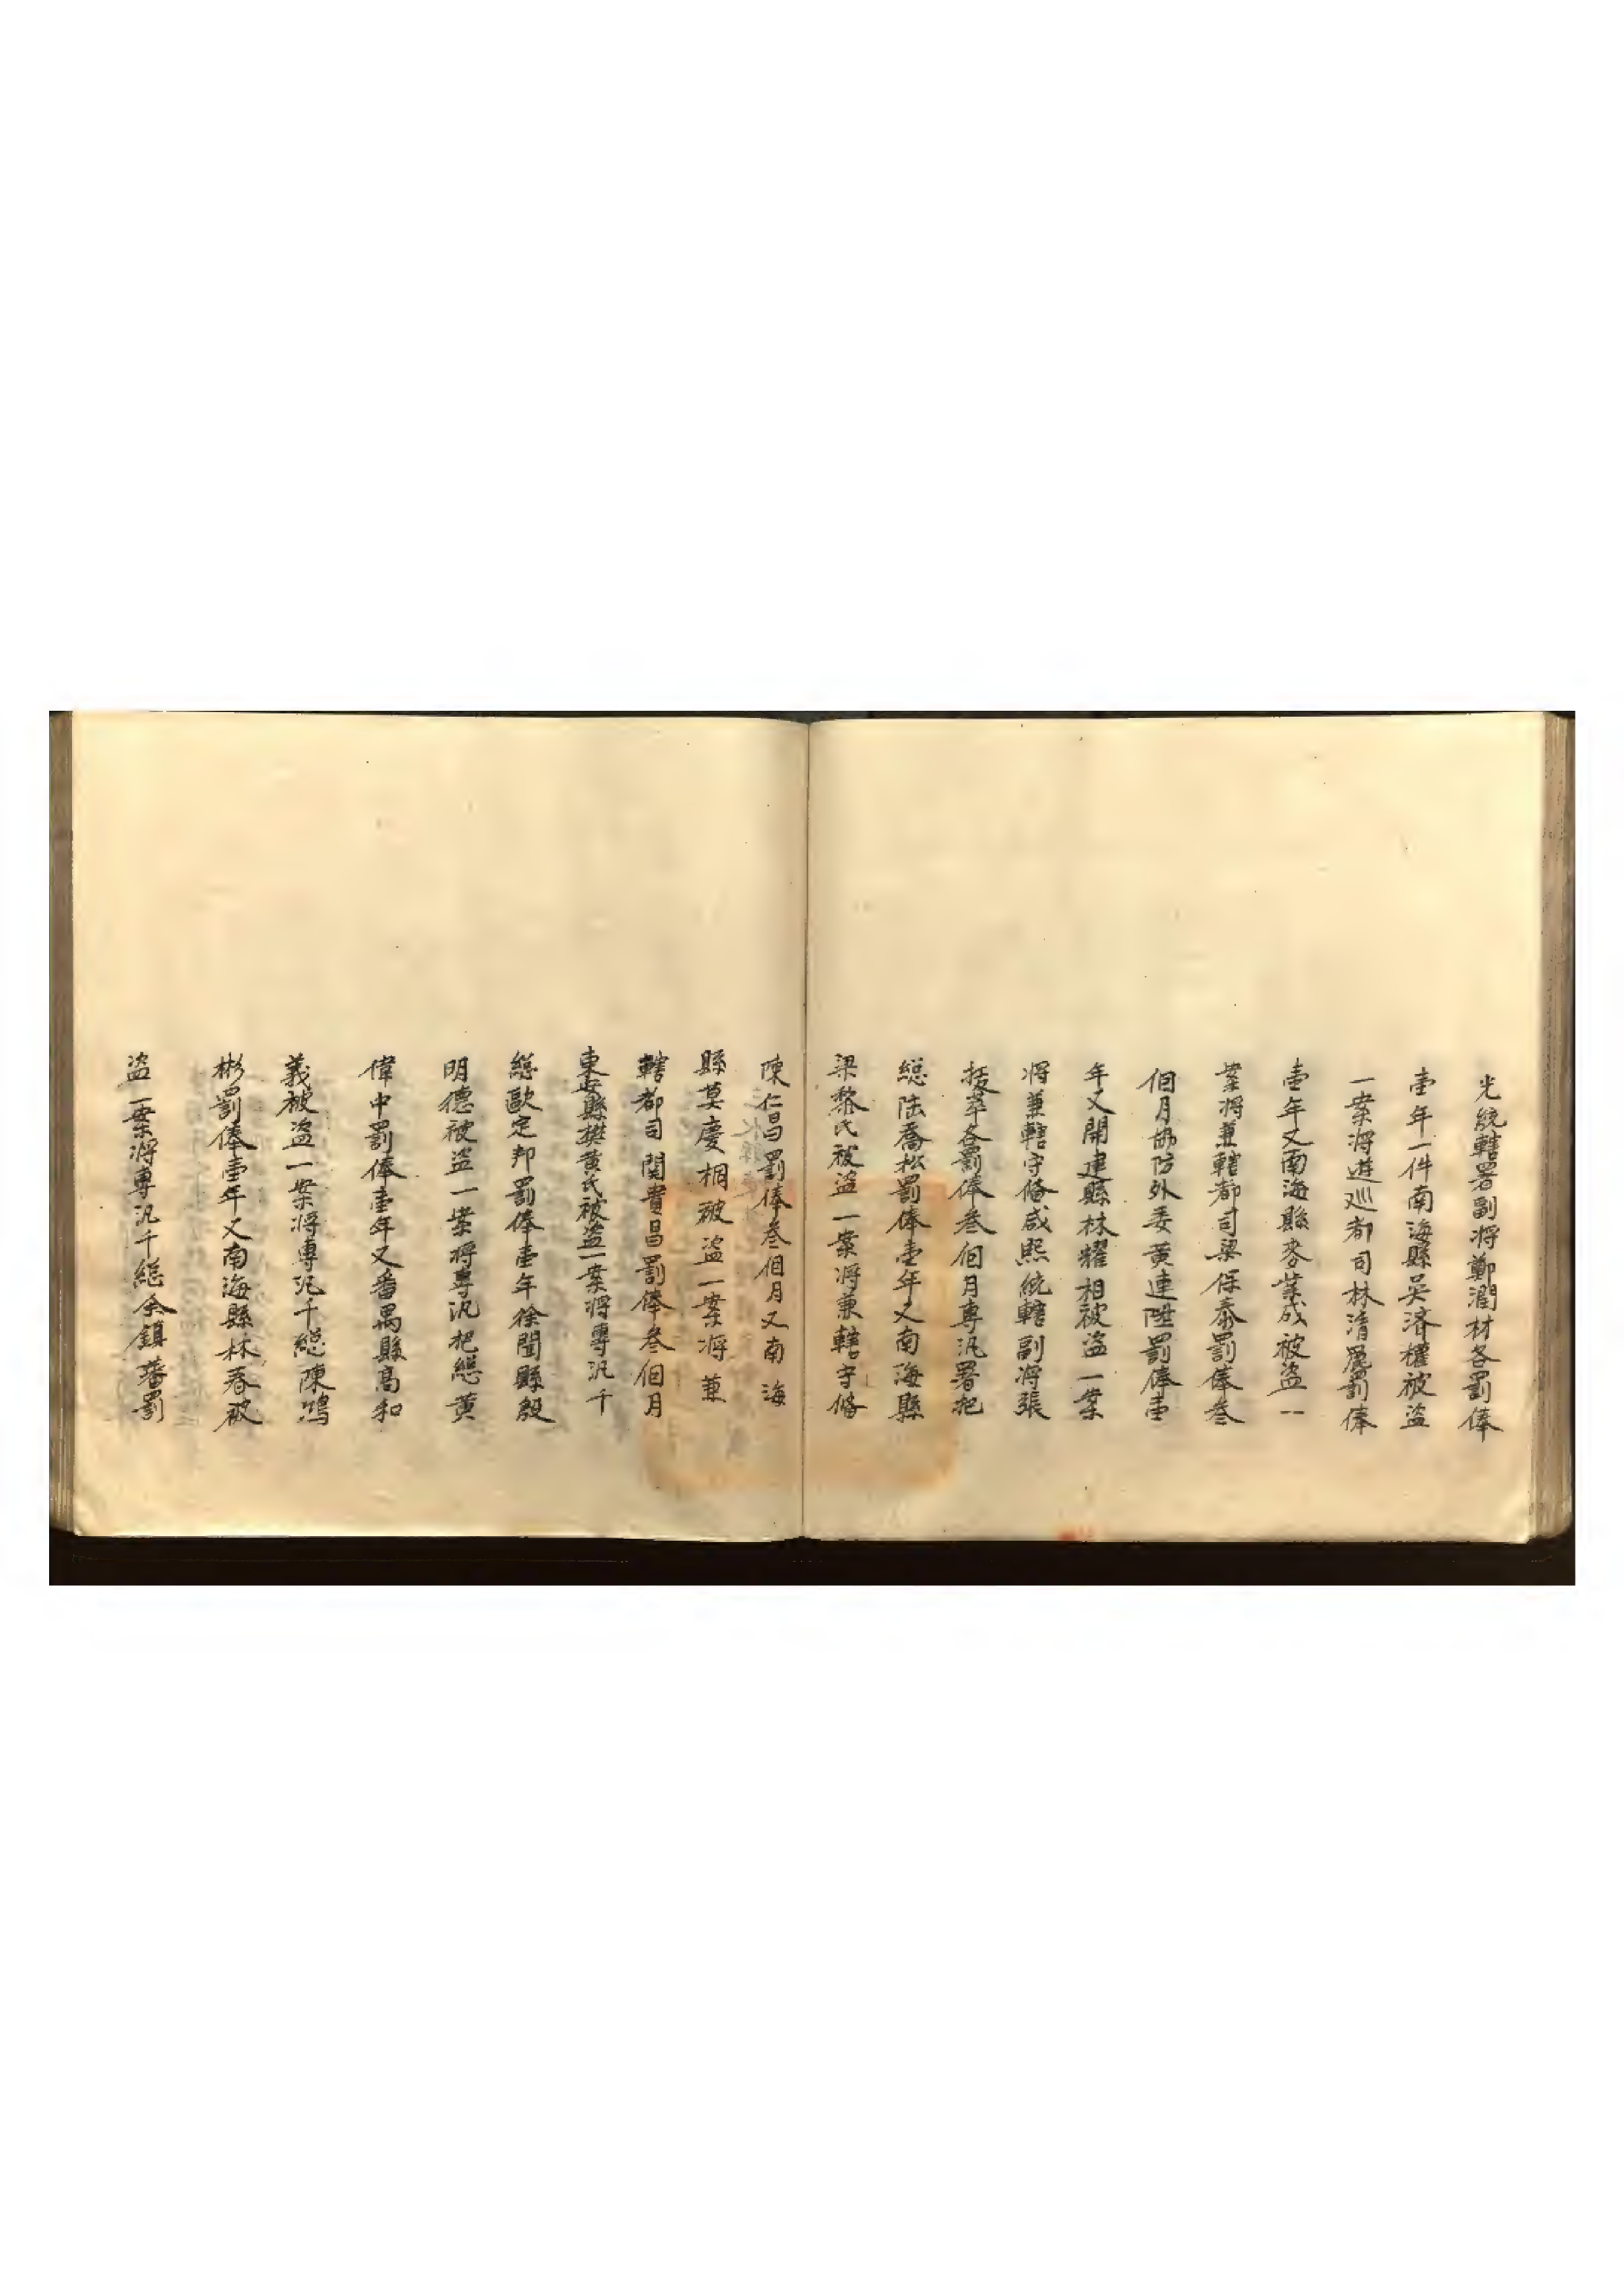 光統轄署副将鄭潤材各罰俸
壹年一件南海縣吳濟權被盜
一案将遊巡都司林清罰俸
壹年又南海縣麥業成被盜一
案将兼轄都司梁保泰罰俸叁
個月協防外委黄連陞罰俸壹
年又開建縣林耀相被盜一案
将兼轄守俻咸熙統轄副将張
拔萃各罰俸叁個月專汛署把
總陆喬松罰俸壹年又南海縣
梁黎氏被盜一案将兼轄守俻
陳仁昌罰俸叁個月又南海
縣莫慶桐被盜一案将兼
轄都司関貴昌罰俸叁個月
東安縣樊黄氏被盜一案将專汛千
總歐定邦罰俸壹年徐聞縣殷
明德被盜一案将專汛把總黄
偉中罰俸壹年又番禺縣高和
義被盜一案将專汛千總陳鴻
彬罰俸壹年又南海縣林春被
盜一案将專汛千總余鎮藩罰